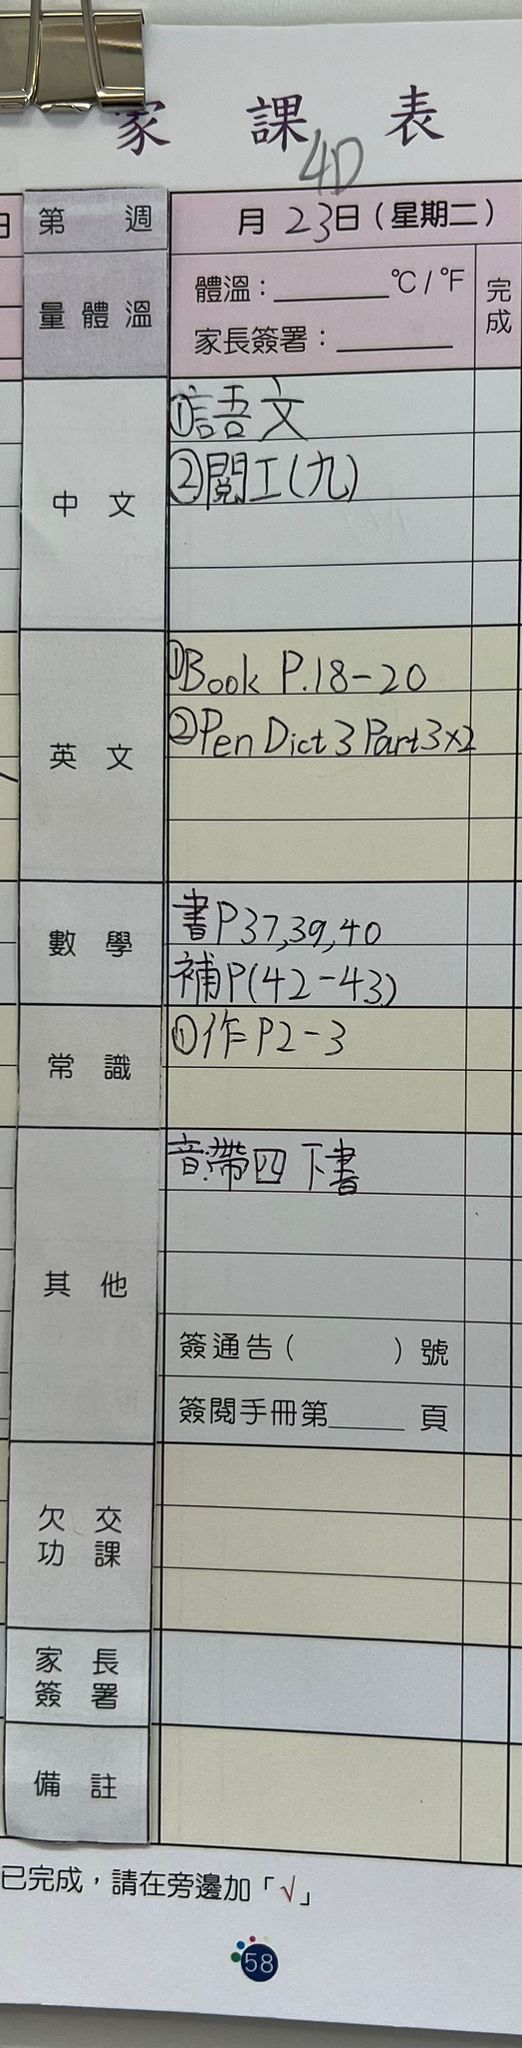 家課表
4D
第 週 月23日(星期二)
量體溫 體溫：______°C/°F 完成
家長簽署：______
中文
①語文
②閱工(九)
英文
①Book P.18-20
②Pen Dict 3 Part3×2
數學
書P37,39,40
補P(42-43)
常識
①作P2-3
其他
音:帶四下書
簽通告( )號
簽閱手冊第____頁
欠交功課
家長簽署
備註
已完成，請在旁邊加「√」
58